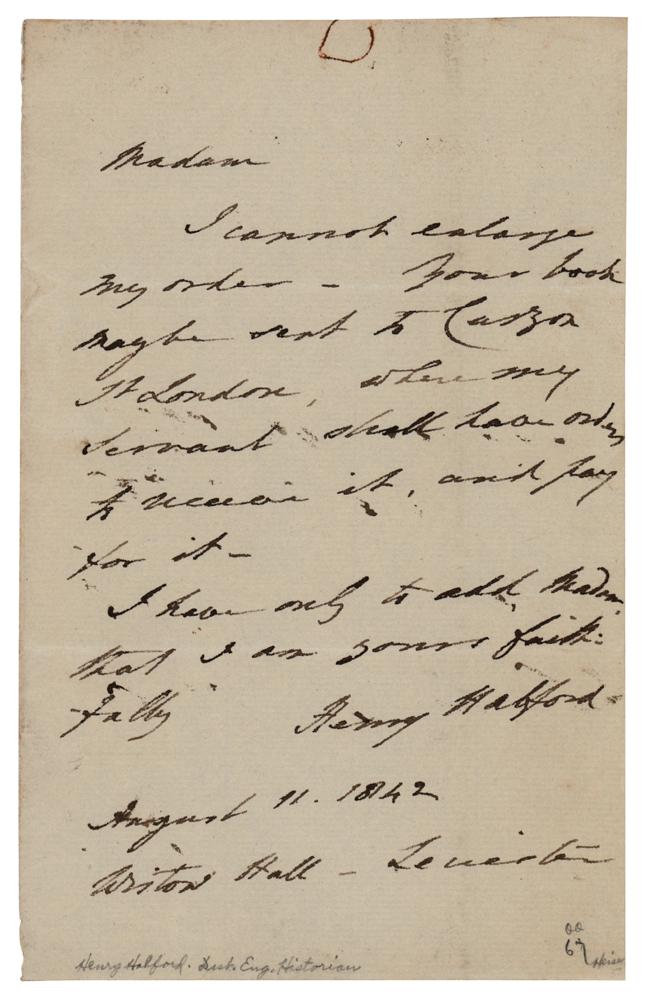 Madam
I cannot enlarge
my order - Your book
may be sent to Curzon
St London, where my
Servant shall have orders
to receive it, and pay
for it -
I have only to add Madam,
that I am yours faith-
fully Henry Halford
August 11. 1842
Wistow Hall - Leicester
Henry Halford. Eng. Historian
67